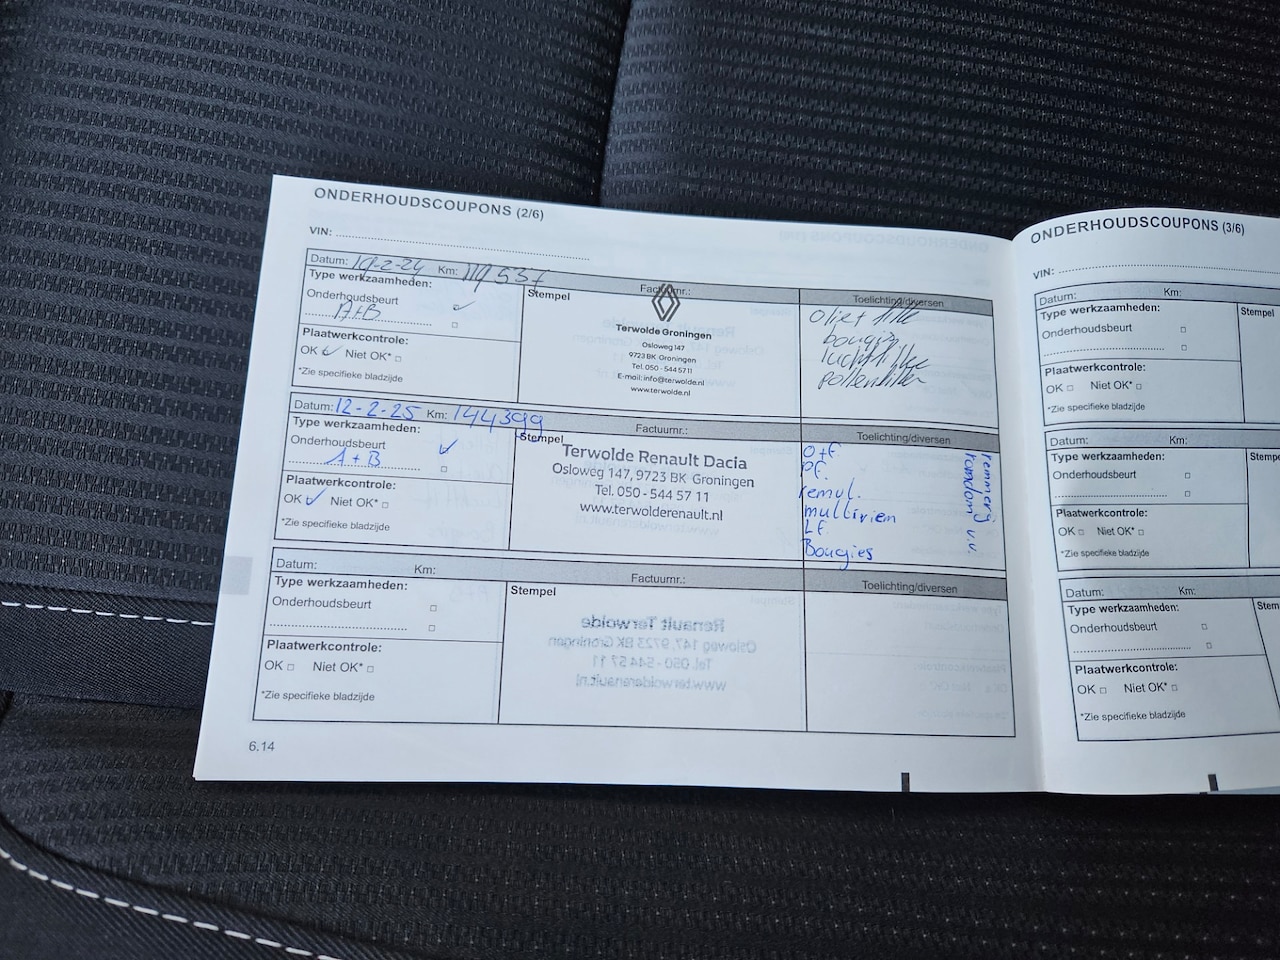 ONDERHOUDSCOUPONS (2/6)
VIN:
Datum: 19-2-24 Km: 119537 Factuurnr.: Toelichting/diversen
Type werkzaamheden:
Onderhoudsbeurt
A+B
Plaatwerkcontrole:
OK Niet OK*
*Zie specifieke bladzijde
Stempel
Terwolde Groningen
Osloweg 147
9723 BK Groningen
Tel. 050 - 544 57 11
E-mail: info@terwolde.nl
www.terwolde.nl
bougies
luchtfilter
pollenfilter
Datum: 12-2-25 Km: 144399 Factuurnr.: Toelichting/diversen
Type werkzaamheden:
Onderhoudsbeurt
A+B
Plaatwerkcontrole:
OK Niet OK*
*Zie specifieke bladzijde
Stempel
Terwolde Renault Dacia
Osloweg 147, 9723 BK Groningen
Tel. 050 - 544 57 11
www.terwolderenault.nl
O+F
P.F.
remvl.
multiriem
L.F.
Bougies
remmerij
rondom v.v.
Datum: Km: Factuurnr.: Toelichting/diversen
Type werkzaamheden:
Onderhoudsbeurt
Plaatwerkcontrole:
OK Niet OK*
*Zie specifieke bladzijde
Stempel
Renault Terwolde
Osloweg 147, 9723 BK Groningen
Tel. 050 - 544 57 11
www.terwolderenault.nl
6.14
ONDERHOUDSCOUPONS (3/6)
VIN:
Datum: Km:
Type werkzaamheden:
Onderhoudsbeurt
Plaatwerkcontrole:
OK Niet OK*
*Zie specifieke bladzijde
Stempel
Datum: Km:
Type werkzaamheden:
Onderhoudsbeurt
Plaatwerkcontrole:
OK Niet OK*
*Zie specifieke bladzijde
Datum: Km:
Type werkzaamheden:
Onderhoudsbeurt
Plaatwerkcontrole:
OK Niet OK*
*Zie specifieke bladzijde